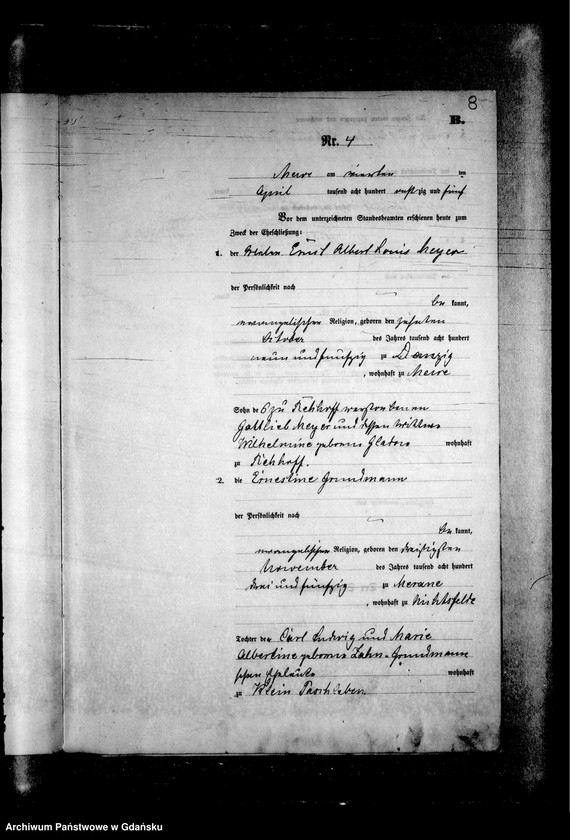 8
B.
Nr. 4
Mewe am vierten ten
April tausend acht hundert achtzig und fünf
Vor dem unterzeichneten Standesbeamten erschienen heute zum
Zweck der Eheschließung:
1. der Ernst Albert Louis Meyer
der Persönlichkeit nach
be kannt,
evangelischer Religion, geboren den zehnten
Oktober des Jahres tausend acht hundert
neun und fünfzig zu Danzig
, wohnhaft zu Mewe
Sohn de s zu Rehhoff verstorbenen
Gottlieb Meyer und dessen Wittwe
Wilhelmine geborene wohnhaft
zu Rehhoff.
2. die Ernestine Grundmann
der Persönlichkeit nach
be kannt,
evangelischer Religion, geboren den dreißigsten
November des Jahres tausend acht hundert
drei und fünfzig zu
, wohnhaft zu
Tochter der Carl Ludwig und Marie
Albertine geborene Zahn-Grundmann
schen Eheleute wohnhaft
zu Klein Paschleben
Archiwum Państwowe w Gdańsku